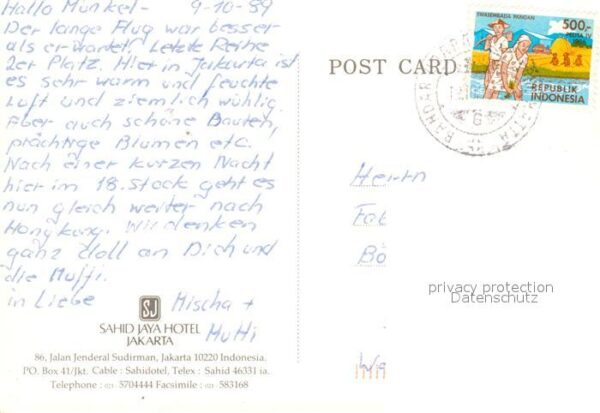 Hallo Munkel- 9-10-89
Der lange Flug war besser
als erwartet, Letzte Reihe
2er Platz. Hier in Jakarta ist
es sehr warm und feuchte
Luft und ziemlich wühlig.
Aber auch schöne Bauten,
prächtige Blumen etc.
Nach einer kurzen Nacht
hier im 18. Stock geht es
nun gleich weiter nach
Hongkong. Wir denken
ganz doll an Dich und
die Muffi.
in Liebe Mischa +
Mutti
SJ
SAHID JAYA HOTEL
JAKARTA
86, Jalan Jenderal Sudirman, Jakarta 10220 Indonesia.
PO. Box 41/Jkt. Cable : Sahidotel, Telex : Sahid 46331 ia.
Telephone : (021) 5704444 Facsimile : (021) 583168
POST CARD
SWASEMBADA PANGAN
500,-
PELITA IV
REPUBLIK
INDONESIA
Herrn
privacy protection
Datenschutz